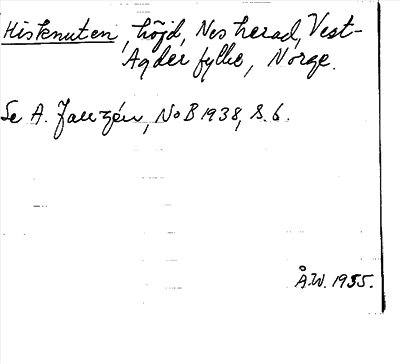 Hisknuten, höjd, Nes herad, Vest-
Agder fylke, Norge.
Se A. Janzén, NoB 1938, s. 6.
Å.W. 1955.